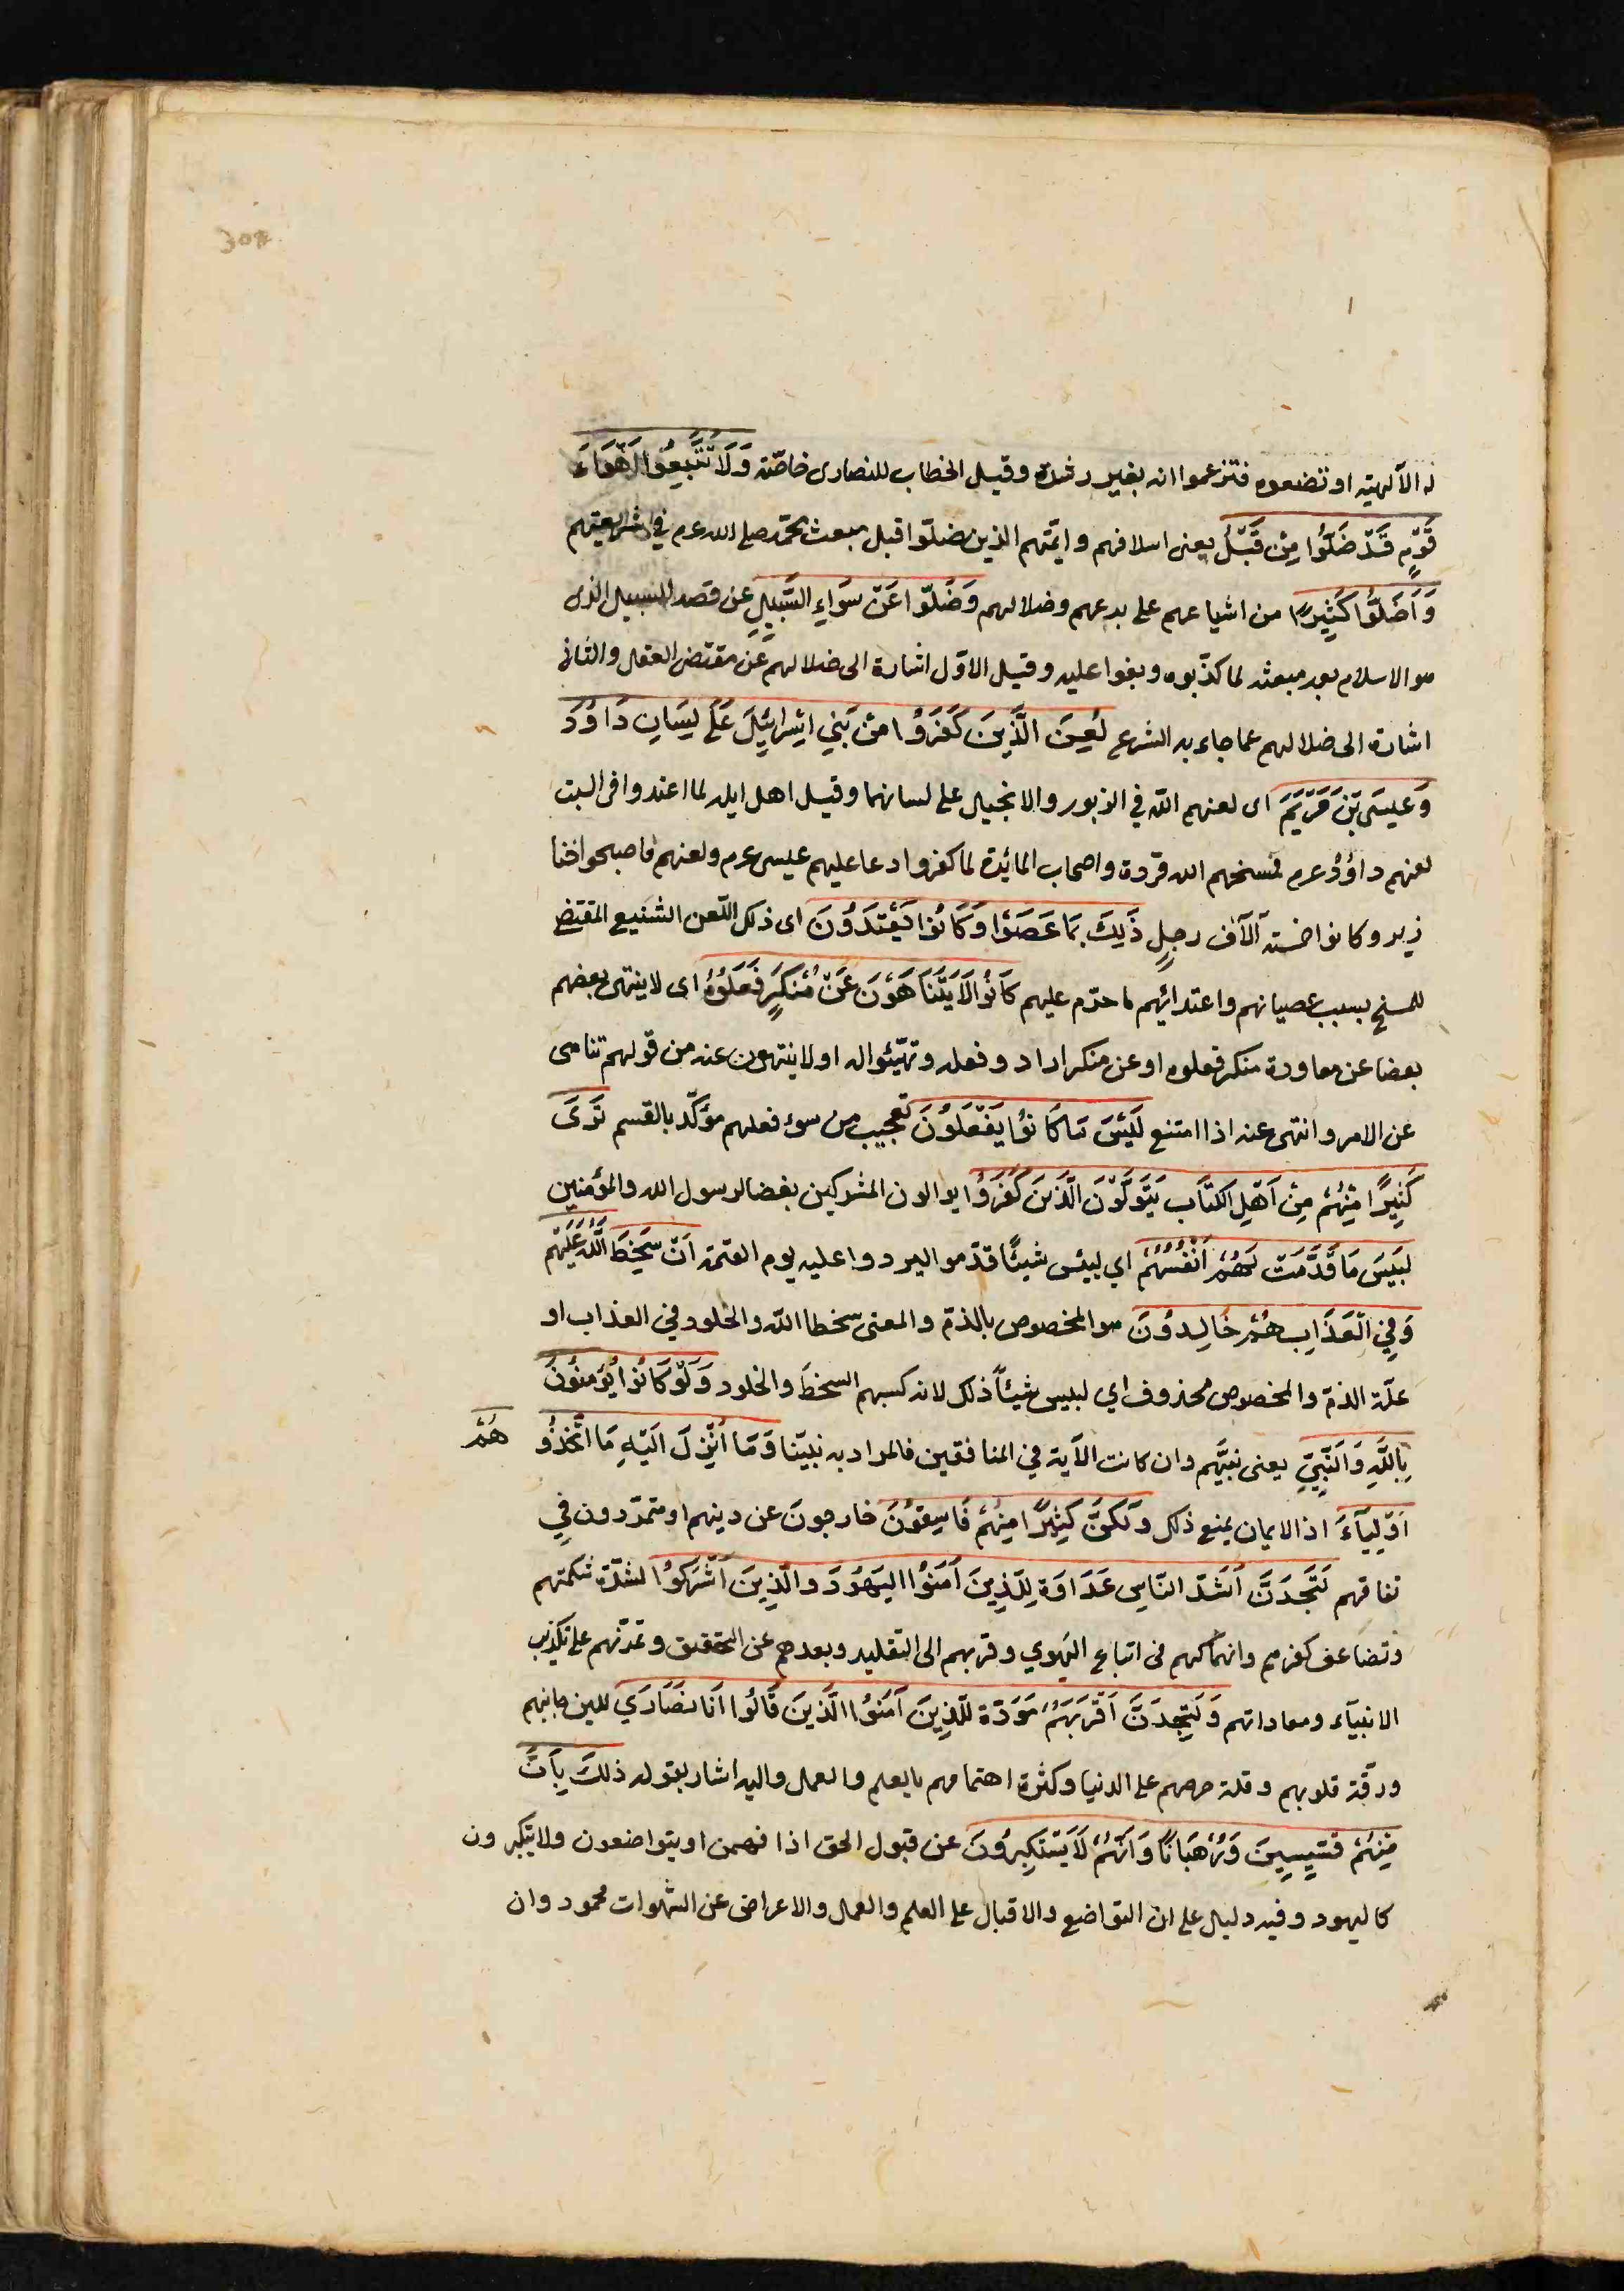 308
له الآلهية او تضعوه فتزعموا انه بغير رشدة وقيل الخطاب للنصارى خاصّة وَلَا تَتَّبِعُوا اَهْوَاءَ
قَوْمٍ قَدْ ضَلُّوا مِنْ قَبْلُ يعنى اسلافهم وائمّتهم الذين ضلّوا قبل مبعث محمّد صلى الله عرم في شريعتهم
وَاَضَلُّوا كَثِيرًا من اشياعهم على بدعهم وضلالهم وَضَلُّوا عَنْ سَوَاءِ السَّبِيلِ عن قصد السبيل الذى
هو الاسلام بعد مبعثه لما كذّبوه وبغوا عليه وقيل الاوّل اشارة الى ضلالهم عن مقتضى العقل والثانى
اشارة الى ضلالهم عما جاء به الشرع لُعِنَ الَّذِينَ كَفَرُوا مِنْ بَنِي اِسْرَائِيلَ عَلَى لِسَانِ دَاوُدَ
وَعِيسَى بْنِ مَرْيَمَ اى لعنهم اللّه في الزبور والانجيل على لسانهما وقيل اهل ايله لما اعتدوا فى السبت
لعنهم داؤدُ عرم فمسخهم الله قردة واصحاب المائدة لما كفروا دعا عليهم عيسى عرم ولعنهم فاصبحوا خنا
زير وكانوا خمسة آلآف رجلٍ ذَلِكَ بِمَا عَصَوْا وَكَانُوا يَعْتَدُونَ اى ذلك اللّعن الشنيع المقتضى
للمسخ بسبب عصيانهم واعتدائهم ما حرّم عليهم كَانُوا لَا يَتَنَاهَوْنَ عَنْ مُنْكَرٍ فَعَلُوهُ اى لا ينتهى بعضهم
بعضا عن معاودة منكر فعلوه او عن منكر ارادو فعله وتهيّئوا له او لا ينتهون عنه من قولهم تناهى
عن الامر وانتهى عنه اذا امتنع لَبِئْسَ مَا كَانُوا يَفْعَلُونَ تعجيب من سوء فعلهم مؤكّد بالقسم تَرَى
كَثِيرًا مِنْهُمْ مِنْ اَهْلِ الكِتَابِ يَتَوَلَّوْنَ الَّذِينَ كَفَرُوا يوالون المشركين بغضا لرسول الله والمؤمنين
لَبِئْسَ مَا قَدَّمَتْ لَهُمْ اَنْفُسُهُمْ اي لبئس شيئًا قدّموا ليردوا عليه يوم القيمة اَنْ سَخِطَ اللَّهُ عَلَيْهِمْ
وَفِي الْعَذَابِ هُمْ خَالِدُونَ هو المخصوص بالذمّ والمعنى سخط اللّه والخلود في العذاب او
علّة الذمّ والمخصوص محذوف اي لبيس شيئاً ذلك لانه كسبهم السخط والخلود وَلَوْ كَانُوا يُؤمِنُونَ
بِاللَّهِ وَالنَّبِيِّ يعنى نبيَّهم وان كانت الآية في المنافقين فالمراد به نبيّنا وَمَا اُنْزِلَ اِلَيْهِ مَا اتَّخَذُو هُمْ
اَوْلِيَآءَ اذ الايمان يمنع ذلك وَلَكِنَّ كَثِيرًا مِنْهُمْ فَاسِقُونَ خارجونَ عن دينهم او متمرّدون في
نفاقهم لَتَجِدَنَّ اَشَدَّ النَّاسِ عَدَاوَةً لِلَّذِينَ آمَنُوا اليَهُودَ والَّذِينَ اَشْرَكُوا لشدّة شكمتهم
وتضاعف كفرهم وانهماكهم فى اتباع الهوي وقربهم الى التقليد وبعدهم عن التحقيق وتمرّنهم على تكذيب
الانبيآء ومعاداتهم وَلَتَجِدَنَّ اَقْرَبَهُمْ مَوَدَّةً لِلَّذِينَ آمَنُوا الَّذِينَ قَالُوا اَنَا نَصَارَي للين جانبهم
ورقّة قلوبهم وقلة حرصهم على الدنيا وكثرة اهتمامهم بالعلم والعمل واليه اشار بقوله ذلِكَ بِاَنَّ
مِنْهُمْ قِسِّيسِينَ وَرُهْبَانًا وَاَنَّهُمْ لَا يَسْتَكْبِرُونَ عن قبول الحق اذا فهمن او يتواضعون ولا يتكبرون
كاليهود وفيه دليل على ان التواضع والاقبال على العلم والعمل والاعراض عن الشهوات محمود وان